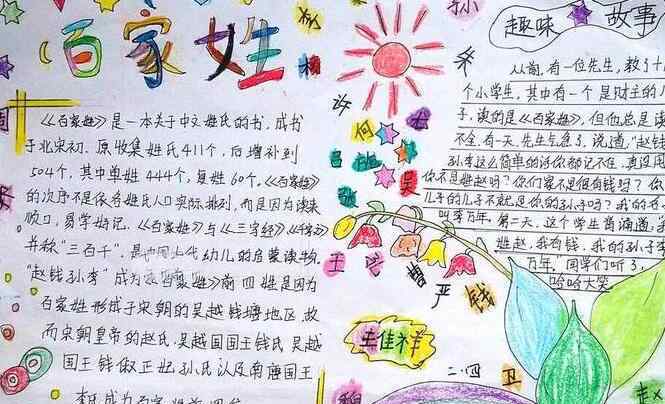 百家姓
《百家姓》是一本关于中文姓氏的书，成书
于北宋初．原收集姓氏411个，后增补到
504个，其中单姓444个，复姓60个。《百家姓》
的次序不是依各姓氏人口实际排列，而是因为读来
顺口，易学好记．《百家姓》与《三字经》《千字文》
并称"三百千"，是中国古代幼儿的启蒙读物．
"赵钱孙李"成为《百家姓》前四姓是因为
百家姓形成于宋朝的吴越钱塘地区，故
而宋朝皇帝的赵氏、吴越国国王钱氏、吴越
国王钱俶正妃孙氏以及南唐国王
李氏成为百家姓前四名
趣味
故事
从前，有一位先生，教了十
个小学生，其中有一个是财主的儿
子，读的是《百家姓》，但他总是读
不全，有一天，先生气急了，说道，"赵钱
孙李这么简单的诗你都记不住，真没用
你不是姓赵吗？你们家不是很有钱吗？你
儿子的儿子不就是你的孙子吗？我的名
叫李万年．第二天，这个学生背诵道，我
姓赵，我有钱，我的孙子李
万年．"同学们听了，
哈哈大笑
孙
朱
杨
柳
许
何
吕
张
吴
王
曹
严
钱
王佳祥
二．四
卫
赵